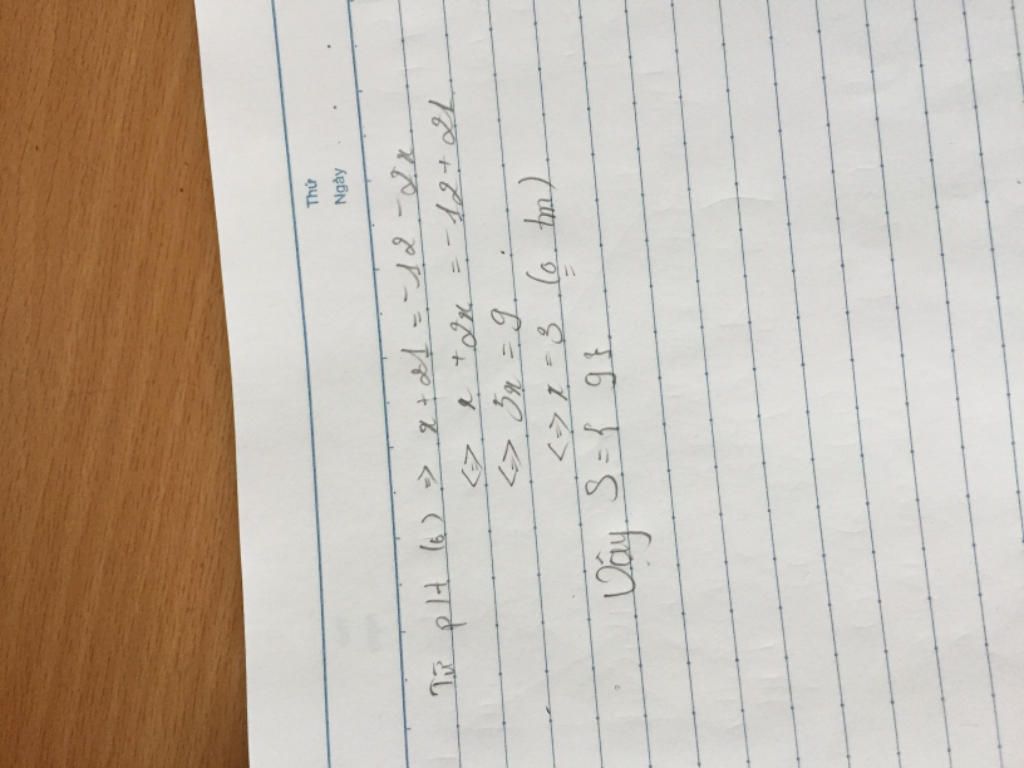 Thứ
Ngày
Từ pH (6) => x + 21 = -12 - 2x
<=> x + 2x = -12 + 21
<=> 3x = 9
<=> x = 3 (o tm)
Vậy S = { 9 }